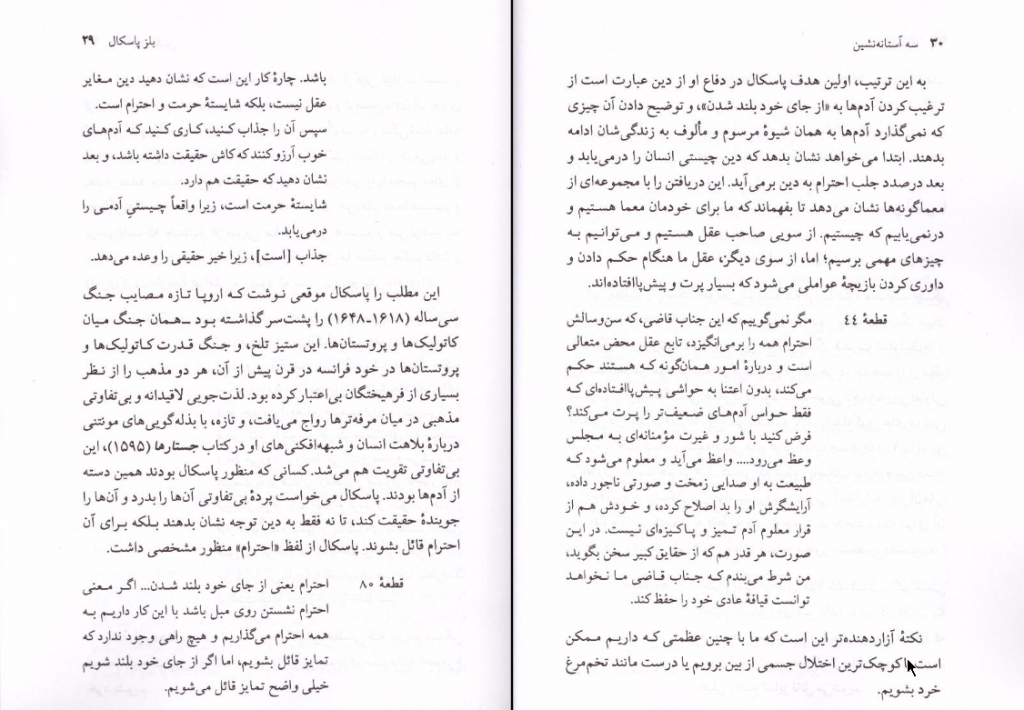 بلز پاسکال   ۲۹
باشد. چارهٔ کار این است که نشان دهید دین مغایر
عقل نیست، بلکه شایستهٔ حرمت و احترام است.
سپس آن را جذاب کنید، کاری کنید که آدم‌های
خوب آرزو کنند که کاش حقیقت داشته باشد، و بعد
نشان دهید که حقیقت هم دارد.
شایستهٔ حرمت است، زیرا واقعاً چیستیِ آدمی را
درمی‌یابد.
جذاب [است]، زیرا خیر حقیقی را وعده می‌دهد.
این مطلب را پاسکال موقعی نوشت که اروپا تازه مصایب جنگ
سی‌ساله (۱۶۱۸-۱۶۴۸) را پشت‌سر گذاشته بود ــ همان جنگ میان
کاتولیک‌ها و پروتستان‌ها. این ستیز تلخ، و جنگ قدرت کاتولیک‌ها و
پروتستان‌ها در خود فرانسه در قرن پیش از آن، هر دو مذهب را از نظر
بسیاری از فرهیختگان بی‌اعتبار کرده بود. لذت‌جویی لاقیدانه و بی‌تفاوتی
مذهبی در میان مرفه‌ترها رواج می‌یافت، و تازه، با بذله‌گویی‌های مونتنی
دربارهٔ بلاهت انسان و شبهه‌افکنی‌های او در کتاب جستارها (۱۵۹۵)، این
بی‌تفاوتی تقویت هم می‌شد. کسانی که منظور پاسکال بودند همین دسته
از آدم‌ها بودند. پاسکال می‌خواست پردهٔ بی‌تفاوتی آن‌ها را بدرد و آن‌ها را
جویندهٔ حقیقت کند، تا نه فقط به دین توجه نشان بدهند بلکه برای آن
احترام قائل بشوند. پاسکال از لفظ «احترام» منظور مشخصی داشت.
قطعهٔ ۸۰   احترام یعنی از جای خود بلند شدن... اگر معنی
احترام نشستن روی مبل باشد با این کار داریم به
همه احترام می‌گذاریم و هیچ راهی وجود ندارد که
تمایز قائل بشویم، اما اگر از جای خود بلند شویم
خیلی واضح تمایز قائل می‌شویم.
۳۰   سه آستانه‌نشین
به این ترتیب، اولین هدف پاسکال در دفاع او از دین عبارت است از
ترغیب کردن آدم‌ها به «از جای خود بلند شدن»، و توضیح دادن آن چیزی
که نمی‌گذارد آدم‌ها به همان شیوهٔ مرسوم و مألوف به زندگی‌شان ادامه
بدهند. ابتدا می‌خواهد نشان بدهد که دین چیستی انسان را درمی‌یابد و
بعد درصدد جلب احترام به دین برمی‌آید. این دریافتن را با مجموعه‌ای از
معماگونه‌ها نشان می‌دهد تا بفهماند که ما برای خودمان معما هستیم و
درنمی‌یابیم که چیستیم. از سویی صاحب عقل هستیم و می‌توانیم به
چیزهای مهمی برسیم؛ اما، از سوی دیگر، عقل ما هنگام حکم دادن و
داوری کردن بازیچهٔ عواملی می‌شود که بسیار پرت و پیش‌پاافتاده‌اند.
قطعهٔ ۴۴   مگر نمی‌گوییم که این جناب قاضی، که سن‌وسالش
احترام همه را برمی‌انگیزد، تابع عقل محض متعالی
است و دربارهٔ امور همان‌گونه که هستند حکم
می‌کند، بدون اعتنا به حواشی پیش‌پاافتاده‌ای که
فقط حواس آدم‌های ضعیف‌تر را پرت می‌کند؟
فرض کنید با شور و غیرت مؤمنانه‌ای به مجلس
وعظ می‌رود.... واعظ می‌آید و معلوم می‌شود که
طبیعت به او صدایی زمخت و صورتی ناجور داده،
آرایشگرش او را بد اصلاح کرده، و خودش هم از
قرار معلوم آدم تمیز و پاکیزه‌ای نیست. در این
صورت، هر قدر هم که از حقایق کبیر سخن بگوید،
من شرط می‌بندم که جناب قاضی ما نخواهد
توانست قیافهٔ عادی خود را حفظ کند.
نکتهٔ آزاردهنده‌تر این است که ما با چنین عظمتی که داریم ممکن
است با کوچک‌ترین اختلال جسمی از بین برویم یا درست مانند تخم‌مرغ
خرد بشویم.